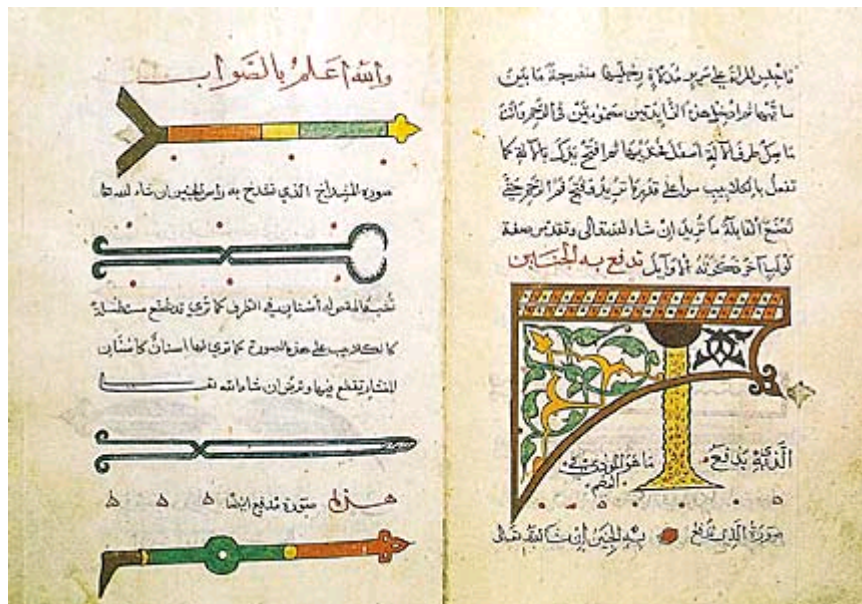 فاجلس المرأة على سرير مدلاة رجليها منفرجة ما بين
ساقيها ثم ادخل هذين الزايدتين مضمومتين في الرحم وانت
ماسك طرف الآلة اسفل ثم افتح يدك بالآلة كما
تفعل بالكلاليب سوا على قدر ما تريد فتح فم الرحم حتى
تصنع القابلة ما تريد ان شاء الله تعالى وتقدس صفة
لولب آخر ذكرته الاوايل تدفع به الجنين
الذي يدفع ما هو
صورة الذي يدفع به الجنين ان شا الله تعالى
والله اعلم بالصواب
صورة المشداخ الذي تشدخ به راس الجنين ان شاء الله تعا
له اسنان في الطرف كما ترى وقد تصنع مستطيلة
كالكلاليب على هذه الصورة كما ترى لها اسنان كاسنان
المنشار تقطع بها وترض ان شاء الله
هذه صورة مدفع ايضا